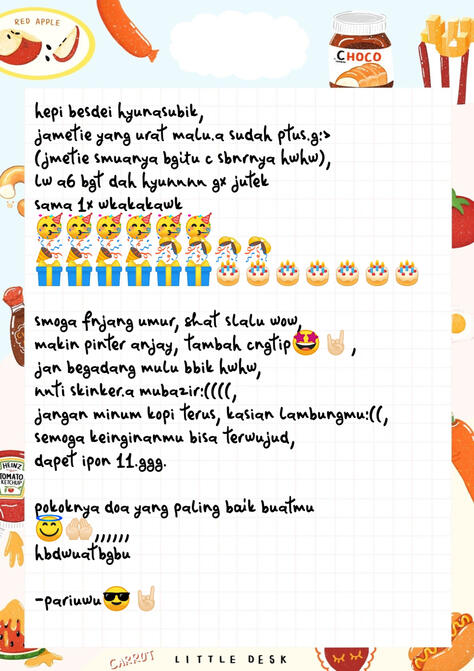 RED APPLE
CHOCO
hepi besdei hyunasubik,
jametie yang urat malu.a sudah ptus.g:>
(jmetie smuanya bgitu c sbnrnya hwhw),
lw a6 bgt dah hyunnnn gx jutek
sama 1x wkakakawk
🥳🥳🥳🥳🥳🥳
🎉🎉🎉🎉🎉🎉🎉🎉
🎁🎁🎁🎁🎁🎁🎂🎂🎂🎂🎂🎂🎂
smoga pnjang umur, shat slalu wow,
makin pinter anjay, tambah cngtip🤩🤘🏻,
jan begadang mulu bbik hwhw,
nnti skinker.a mubazir:((((,
jangan minum kopi terus, kasian lambungmu:((,
semoga keinginanmu bisa terwujud,
dapet ipon 11.ggg.
HEINZ
TOMATO
KETCHUP
pokoknya doa yang paling baik buatmu
😇🤲🏻,,,,,,
hbdwuatbgbu
-pariuwu😎🤘🏻
CARROT
LITTLE DESK